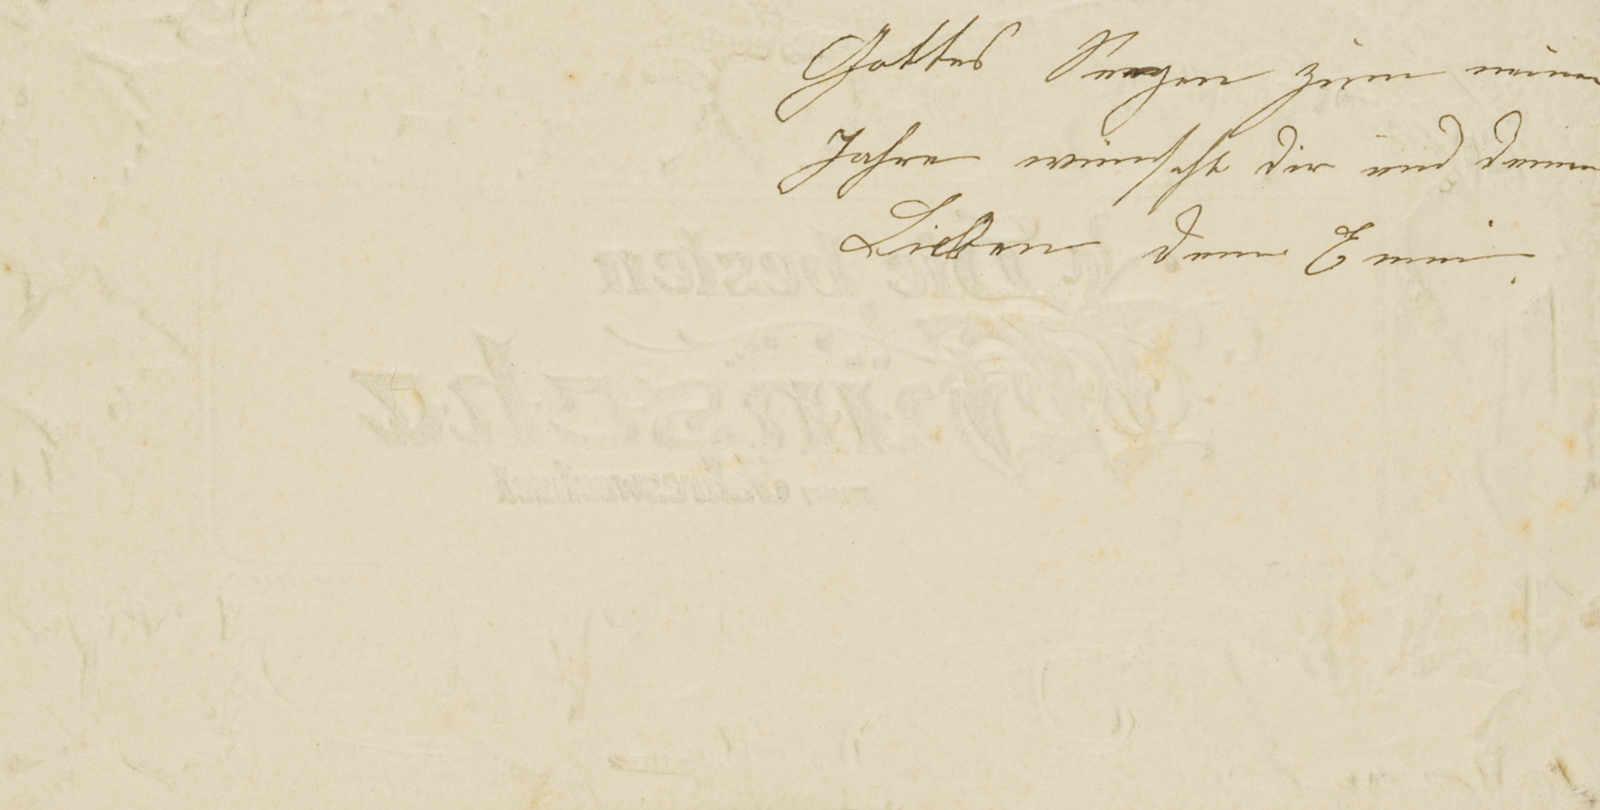 Gottes Segen zum neuen
Jahre wünscht dir und deinen
Lieben dein Emmi.
Die besten
Wünsche
zum Jahreswechsel